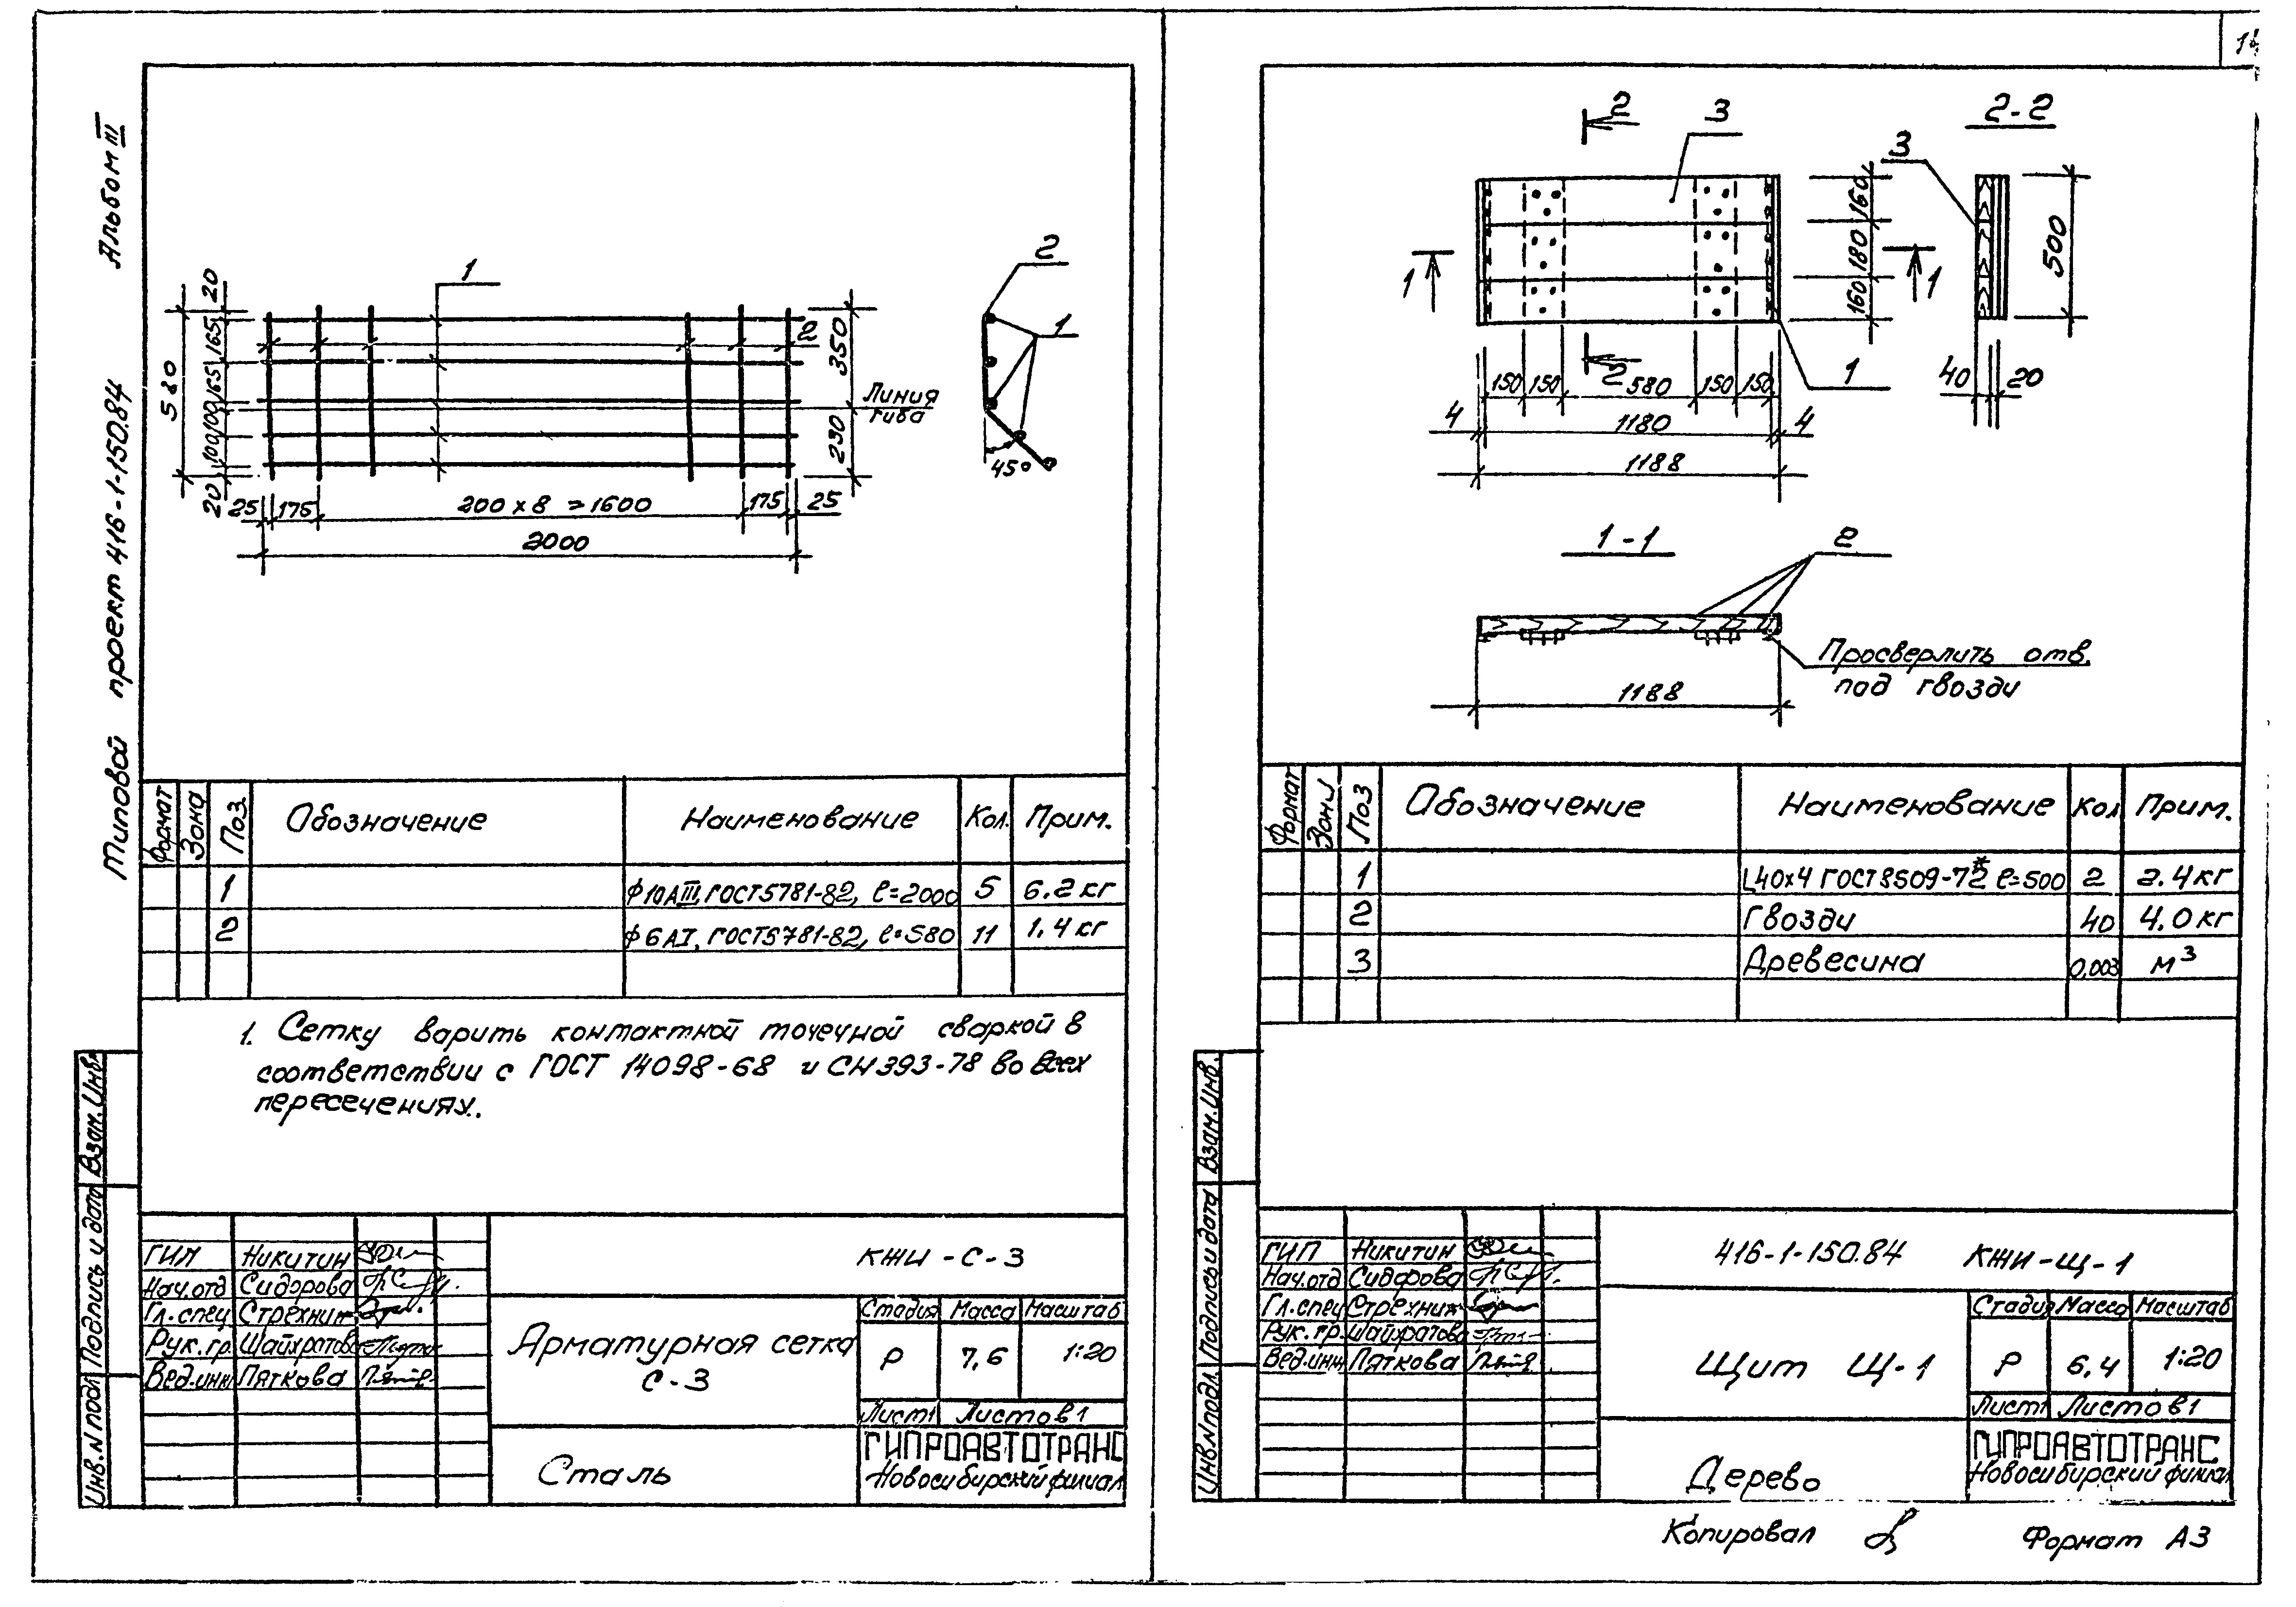 Альбом III
Типовой проект 416-1-150.84
1
2
1
2
20
165
165
100
100
20
580
350
230
Линия
гиба
45°
25
175
200 x 8 = 1600
175
25
2000
Формат Зона Поз. Обозначение Наименование Кол. Прим.
1 ф10АIII, ГОСТ5781-82, ℓ=2000 5 6.2 кг
2 ф6АI, ГОСТ5781-82, ℓ=580 11 1.4 кг
1. Сетку варить контактной точечной сваркой в
соответствии с ГОСТ 14098-68 и СН393-78 во всех
пересечениях.
Взам.Инв.
Подпись и дата
Инв.N подл
ГИП Никитин
Нач.отд Сидорова
Гл.спец Стрехнин
Рук.гр. Шайхратова
Вед.инж Пяткова
КЖИ-С-3
Арматурная сетка
С-3
Стадия Масса Масштаб
Р 7,6 1:20
Лист1 Листов1
Сталь
ГИПРОАВТОТРАНС
Новосибирский филиал
2
3
2-2
3
160
180
160
500
1
1
1
2
150 150 580 150 150
4 1180 4
1188
40 20
1-1
2
Просверлить отв.
под гвозди
1188
Формат Зона Поз Обозначение Наименование Кол Прим.
1 L40x4 ГОСТ8509-72* ℓ=500 2 2.4 кг
2 Гвозди 40 4.0 кг
3 Древесина 0,003 м³
Взам.Инв.
Подпись и дата
Инв.N подл.
ГИП Никитин
Нач.отд Сидорова
Гл.спец Стрехнин
Рук.гр. Шайхратова
Вед.инж Пяткова
416-1-150.84 КЖИ-Щ-1
Щит Щ-1
Стадия Масса Масштаб
Р 6,4 1:20
Лист1 Листов1
Дерево
ГИПРОАВТОТРАНС
Новосибирский филиал
Копировал
Формат А3